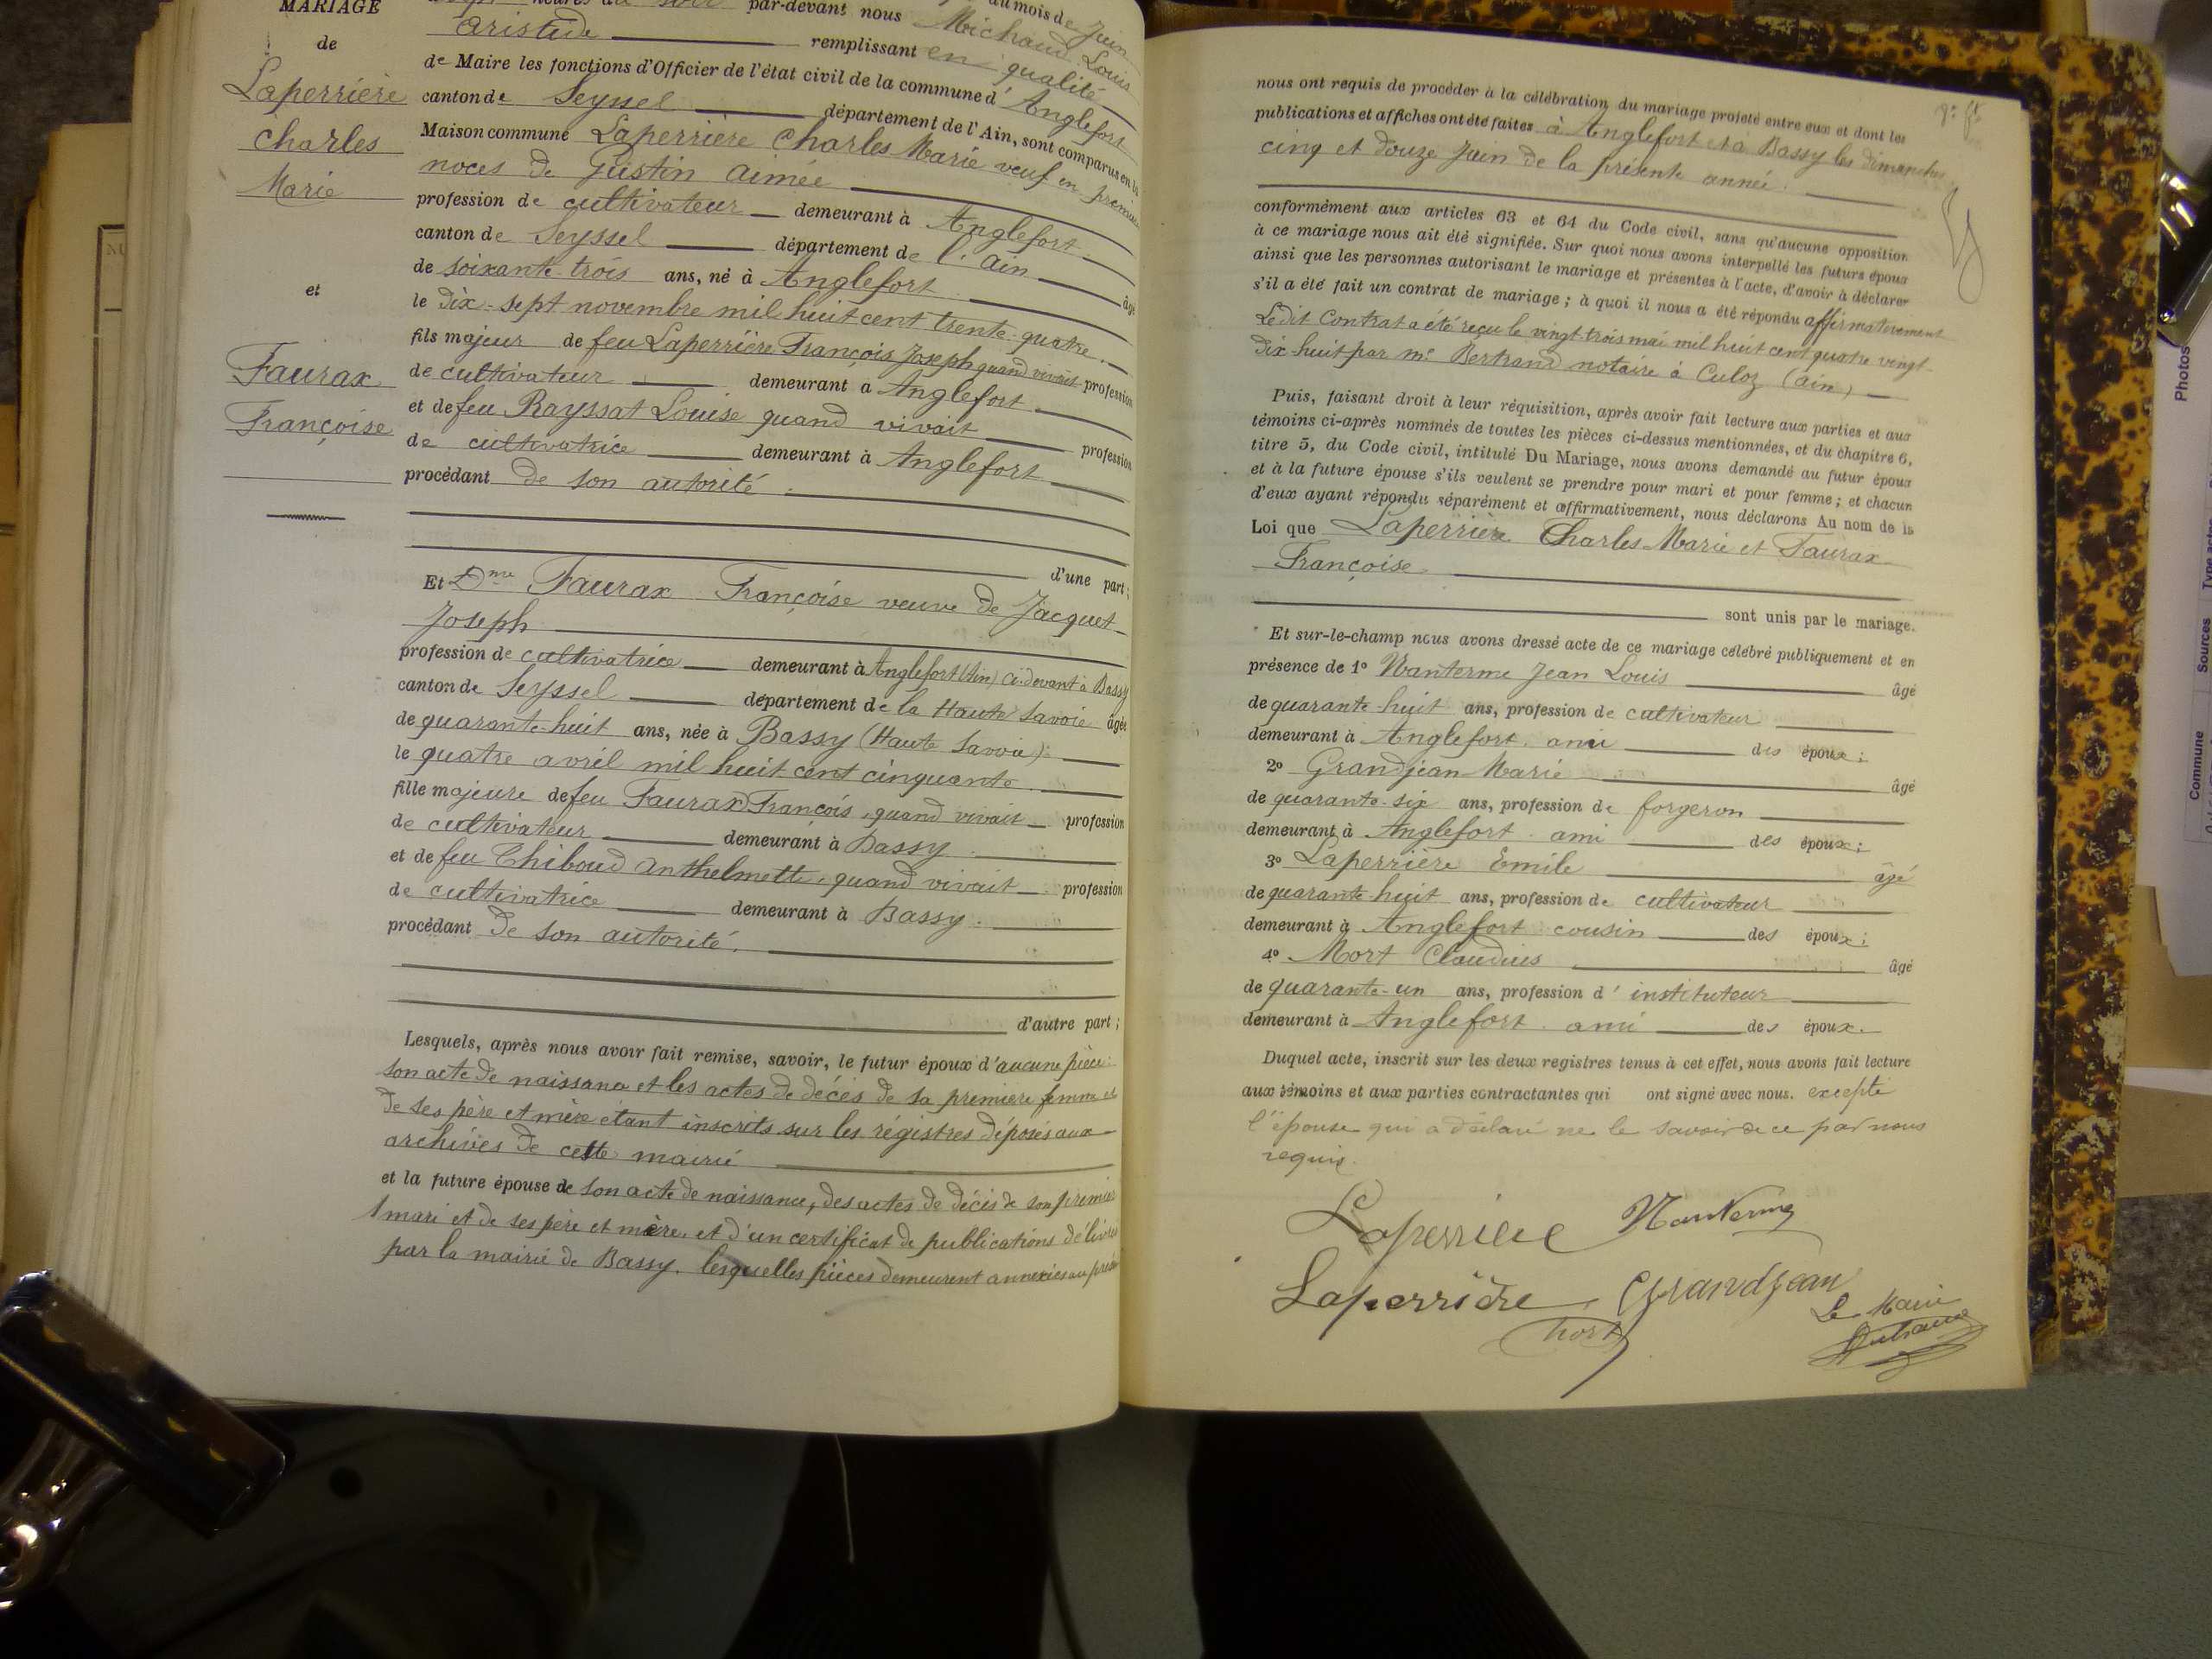 MARIAGE
de
Laperrière
Charles
Marie
et
Faurax
Françoise
heures du soir par-devant nous Michaud Louis
au mois de Juin
Aristide remplissant en qualité
de Maire les fonctions d'Officier de l'état civil de la commune d'Anglefort
canton de Seyssel département de l'Ain, sont comparus en la
Maison commune Laperrière Charles Marie veuf en premières
noces de Justin Aimée
profession de cultivateur demeurant à Anglefort
canton de Seyssel département de l'Ain âgé
de soixante trois ans, né à Anglefort
le dix-sept novembre mil huit cent trente-quatre.
fils majeur de feu Laperrière François Joseph quand vivait profession
de cultivateur demeurant à Anglefort
et de feu Rayssat Louise quand vivait profession
de cultivatrice demeurant à Anglefort
procédant de son autorité.
d'une part;
Et Dme Faurax Françoise veuve de Jacquet
Joseph
profession de cultivatrice demeurant à Anglefort (Ain) ci-devant à Bassy
canton de Seyssel département de la Haute Savoie âgée
de quarante-huit ans, née à Bassy (Haute Savoie)
le quatre avril mil huit cent cinquante
fille majeure de feu Faurax François, quand vivait profession
de cultivateur demeurant à Bassy
et de feu Thiboud Anthelmette, quand vivait profession
de cultivatrice demeurant à Bassy.
procédant de son autorité.
d'autre part;
Lesquels, après nous avoir fait remise, savoir, le futur époux d'aucune pièce:
son acte de naissance et les actes de décès de sa première femme et
de ses père et mère étant inscrits sur les régistres déposés aux
archives de cette mairie
et la future épouse de son acte de naissance, des actes de décès de son premier
mari et de ses père et mère, et d'un certificat de publications délivré
par la mairie de Bassy, lesquelles pièces demeurent annexées au présent
nous ont requis de procéder à la célébration du mariage projeté entre eux et dont les
publications et affiches ont été faites à Anglefort et à Bassy les dimanches
cinq et douze Juin de la présente année.
conformément aux articles 63 et 64 du Code civil, sans qu'aucune opposition
à ce mariage nous ait été signifiée. Sur quoi nous avons interpellé les futurs époux
ainsi que les personnes autorisant le mariage et présentes à l'acte, d'avoir à déclarer
s'il a été fait un contrat de mariage; à quoi il nous a été répondu affirmativement
Ledit Contrat a été reçu le vingt-trois mai mil huit cent quatre vingt-
dix-huit par Me Bertrand notaire à Culoz (Ain)
Puis, faisant droit à leur réquisition, après avoir fait lecture aux parties et aux
témoins ci-après nommés de toutes les pièces ci-dessus mentionnées, et du chapitre 6,
titre 5, du Code civil, intitulé Du Mariage, nous avons demandé au futur époux
et à la future épouse s'ils veulent se prendre pour mari et pour femme; et chacun
d'eux ayant répondu séparément et affirmativement, nous déclarons Au nom de la
Loi que Laperrière Charles Marie et Faurax
Françoise
sont unis par le mariage.
Et sur-le-champ nous avons dressé acte de ce mariage célébré publiquement et en
présence de 1º Nanterme Jean Louis âgé
de quarante huit ans, profession de cultivateur
demeurant à Anglefort ami des époux;
2º Grandjean Marie âgé
de quarante-six ans, profession de forgeron
demeurant à Anglefort ami des époux;
3º Laperrière Emile âgé
de quarante huit ans, profession de cultivateur
demeurant à Anglefort cousin des époux;
4º Mort Claudius âgé
de quarante-un ans, profession d'instituteur
demeurant à Anglefort ami des époux.
Duquel acte, inscrit sur les deux registres tenus à cet effet, nous avons fait lecture
aux témoins et aux parties contractantes qui ont signé avec nous. excepté
l'épouse qui a déclaré ne le savoir de ce par nous
requis.
Laperrière Nanterme
Laperrière Grandjean
Mort
Le Maire
Photos
Type acte
Sources
Commune